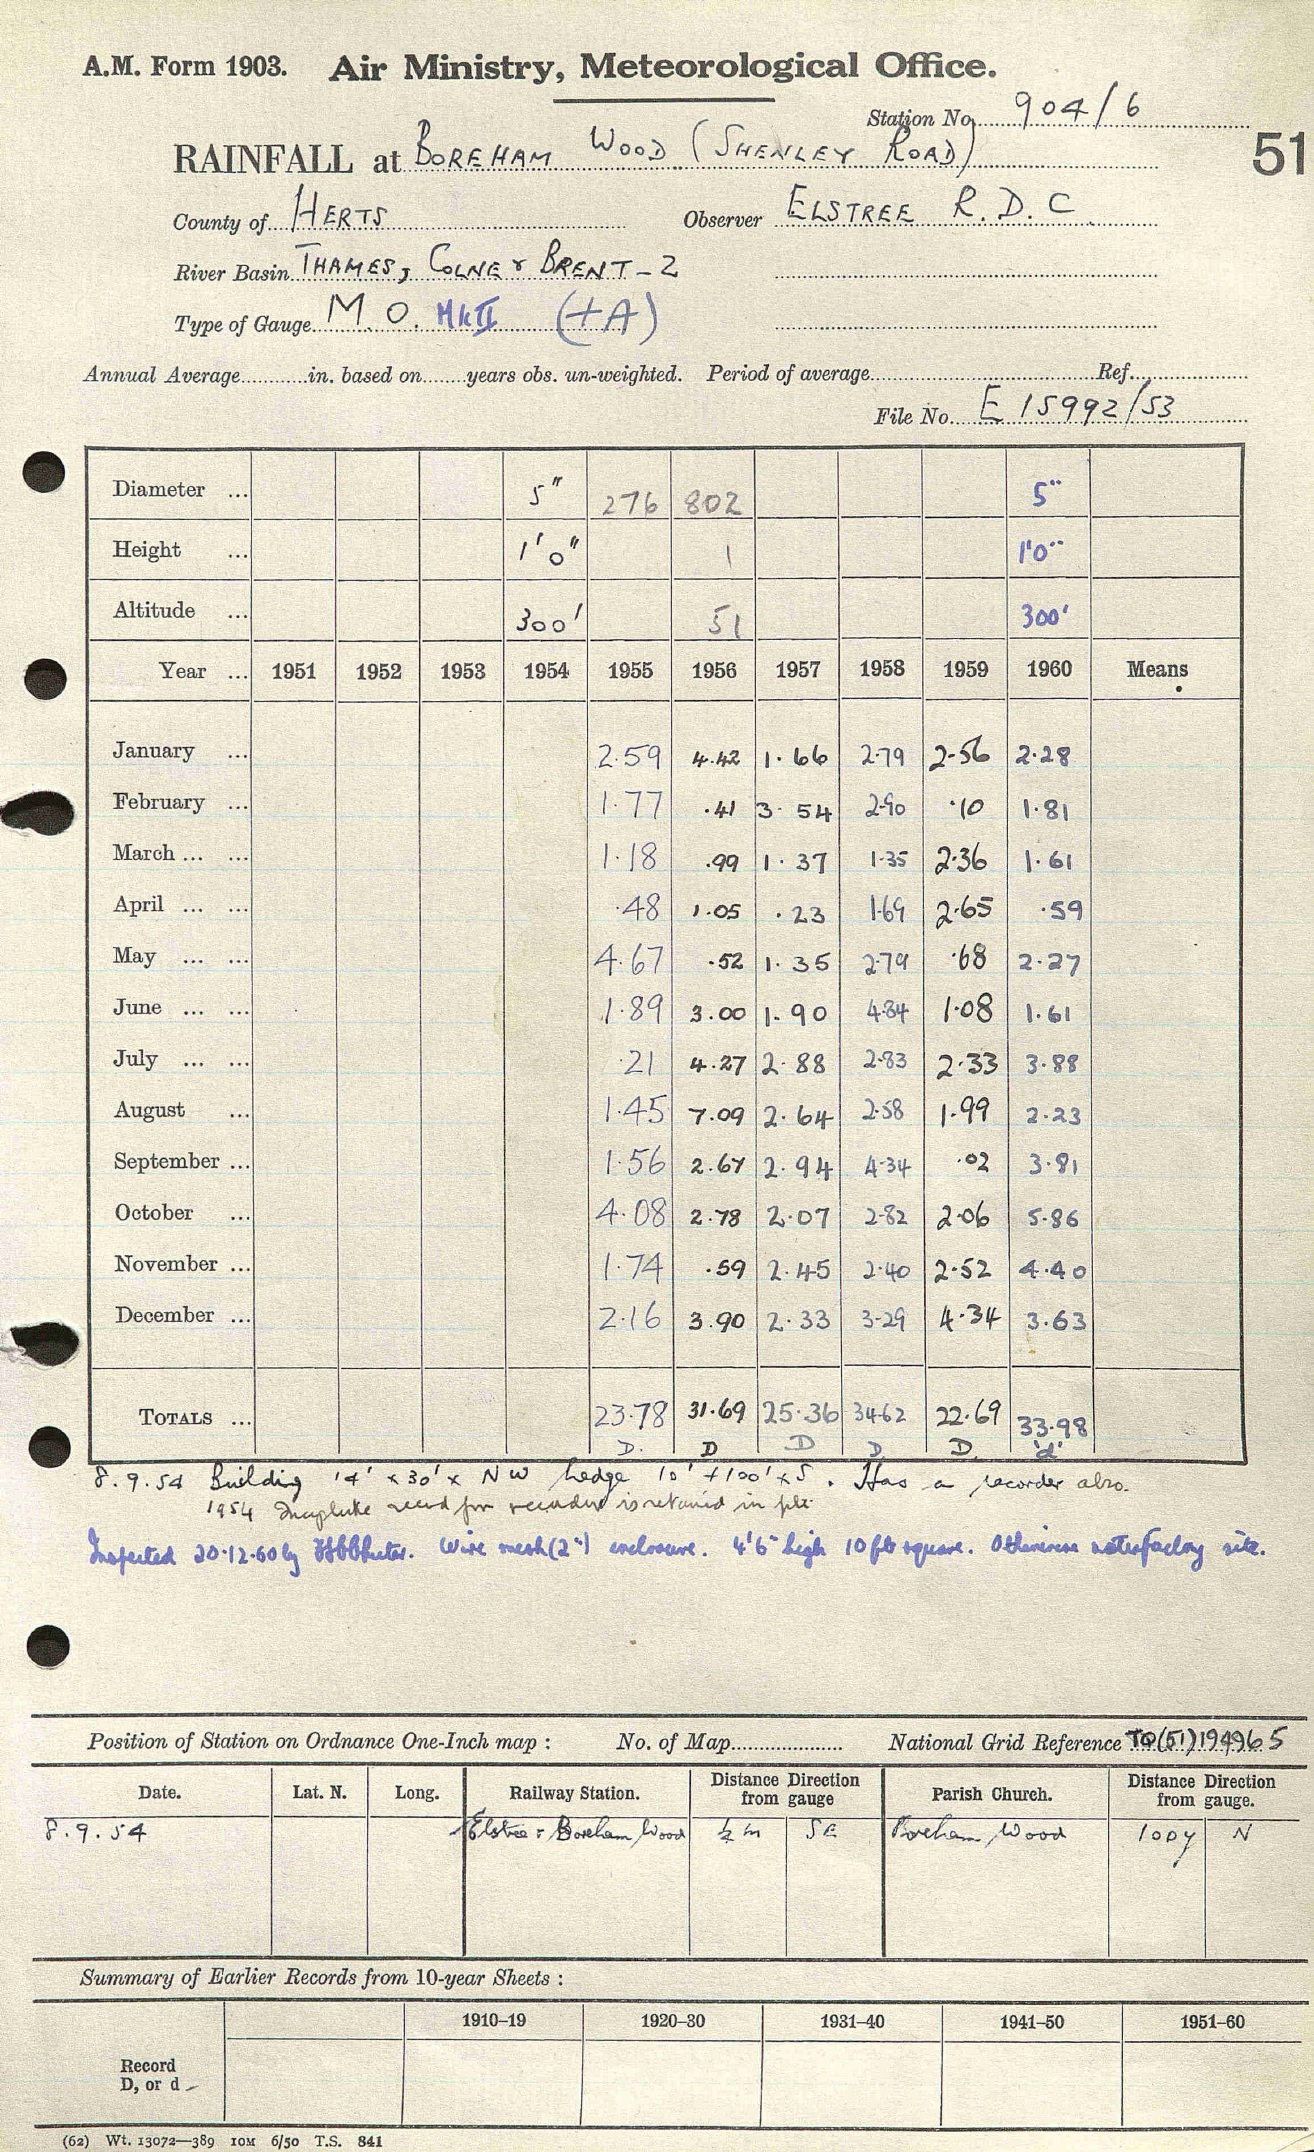 A.M. Form 1903. Air Ministry, Meteorological Office.
Station No. 904/6
RAINFALL at BOREHAM WOOD (SHENLEY ROAD)
51
County of HERTS Observer ELSTREE R.D.C.
River Basin THAMES, COLNE & BRENT-2
Type of Gauge M.O. Mk II (+A)
Annual Average in. based on years obs. un-weighted. Period of average Ref.
File No. E 15992/53
Diameter ... 5" 276 802 5"
Height ... 1'0" 1 1'0"
Altitude ... 300' 51 300'
Year ... 1951 1952 1953 1954 1955 1956 1957 1958 1959 1960 Means
January ... 2.59 4.42 1.66 2.79 2.56 2.28
February ... 1.77 .41 3.54 2.90 .10 1.81
March ... ... 1.18 .99 1.37 1.35 2.36 1.61
April ... ... .48 1.05 .23 1.69 2.65 .59
May ... ... 4.67 .52 1.35 2.79 .68 2.27
June ... ... 1.89 3.00 1.90 4.84 1.08 1.61
July ... ... .21 4.27 2.88 2.83 2.33 3.88
August ... 1.45 7.09 2.64 2.58 1.99 2.23
September ... 1.56 2.67 2.94 4.34 .02 3.81
October ... 4.08 2.78 2.07 2.82 2.06 5.86
November ... 1.74 .59 2.45 2.40 2.52 4.40
December ... 2.16 3.90 2.33 3.29 4.34 3.63
TOTALS ... 23.78 31.69 25.36 34.62 22.69 33.98
D. D D D D. 'd'
8.9.54 Building 14' x 30' x NW hedge 10' + 100' x S. Has a recorder also.
1954 record for recorder is retained in file
Inspected 20.12.60 by Wire mesh (2") enclosure. 4'6" high 10 ft square. Otherwise satisfactory site.
Position of Station on Ordnance One-Inch map : No. of Map National Grid Reference TQ(51)194965
Date. Lat. N. Long. Railway Station. Distance Direction from gauge Parish Church. Distance Direction from gauge.
8.9.54 Elstree & Boreham Wood ½ m SE Boreham Wood 100y N
Summary of Earlier Records from 10-year Sheets :
1910–19 1920–30 1931–40 1941–50 1951–60
Record
D, or d
(62) Wt. 13072—389 10M 6/50 T.S. 841